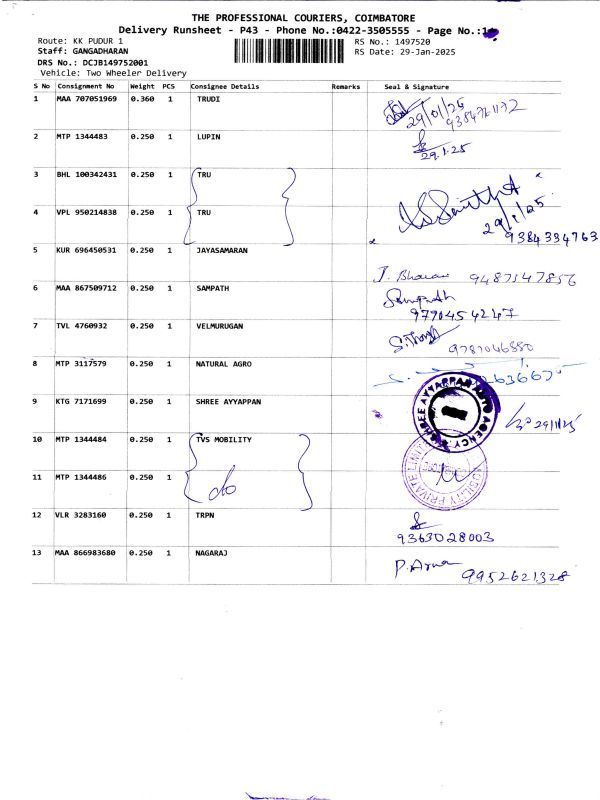 THE PROFESSIONAL COURIERS, COIMBATORE
Delivery Runsheet - P43 - Phone No.:0422-3505555 - Page No.:1
Route: KK PUDUR 1
RS No.: 1497520
Staff: GANGADHARAN
RS Date: 29-Jan-2025
DRS No.: DCJB149752001
Vehicle: Two Wheeler Delivery
S No Consignment No Weight PCS Consignee Details Remarks Seal & Signature
1 MAA 707051969 0.360 1 TRUDI 29/01/25
2 MTP 1344483 0.250 1 LUPIN 29.1.25
3 BHL 100342431 0.250 1 TRU
4 VPL 950214838 0.250 1 TRU 29/1/25
9384334763
5 KUR 696450531 0.250 1 JAYASAMARAN
J. 9487547856
6 MAA 867509712 0.250 1 SAMPATH Sampath
9790454247
7 TVL 4760932 0.250 1 VELMURUGAN
9787046880
8 MTP 3117579 0.250 1 NATURAL AGRO
9 KTG 7171699 0.250 1 SHREE AYYAPPAN SHREE AYYAPPAN AUTO AGENCY 29/1/25
10 MTP 1344484 0.250 1 TVS MOBILITY MOBILITY PRIVATE LIMITED
11 MTP 1344486 0.250 1 do
12 VLR 3283160 0.250 1 TRPN
9363028003
13 MAA 866983680 0.250 1 NAGARAJ P.
9952621328